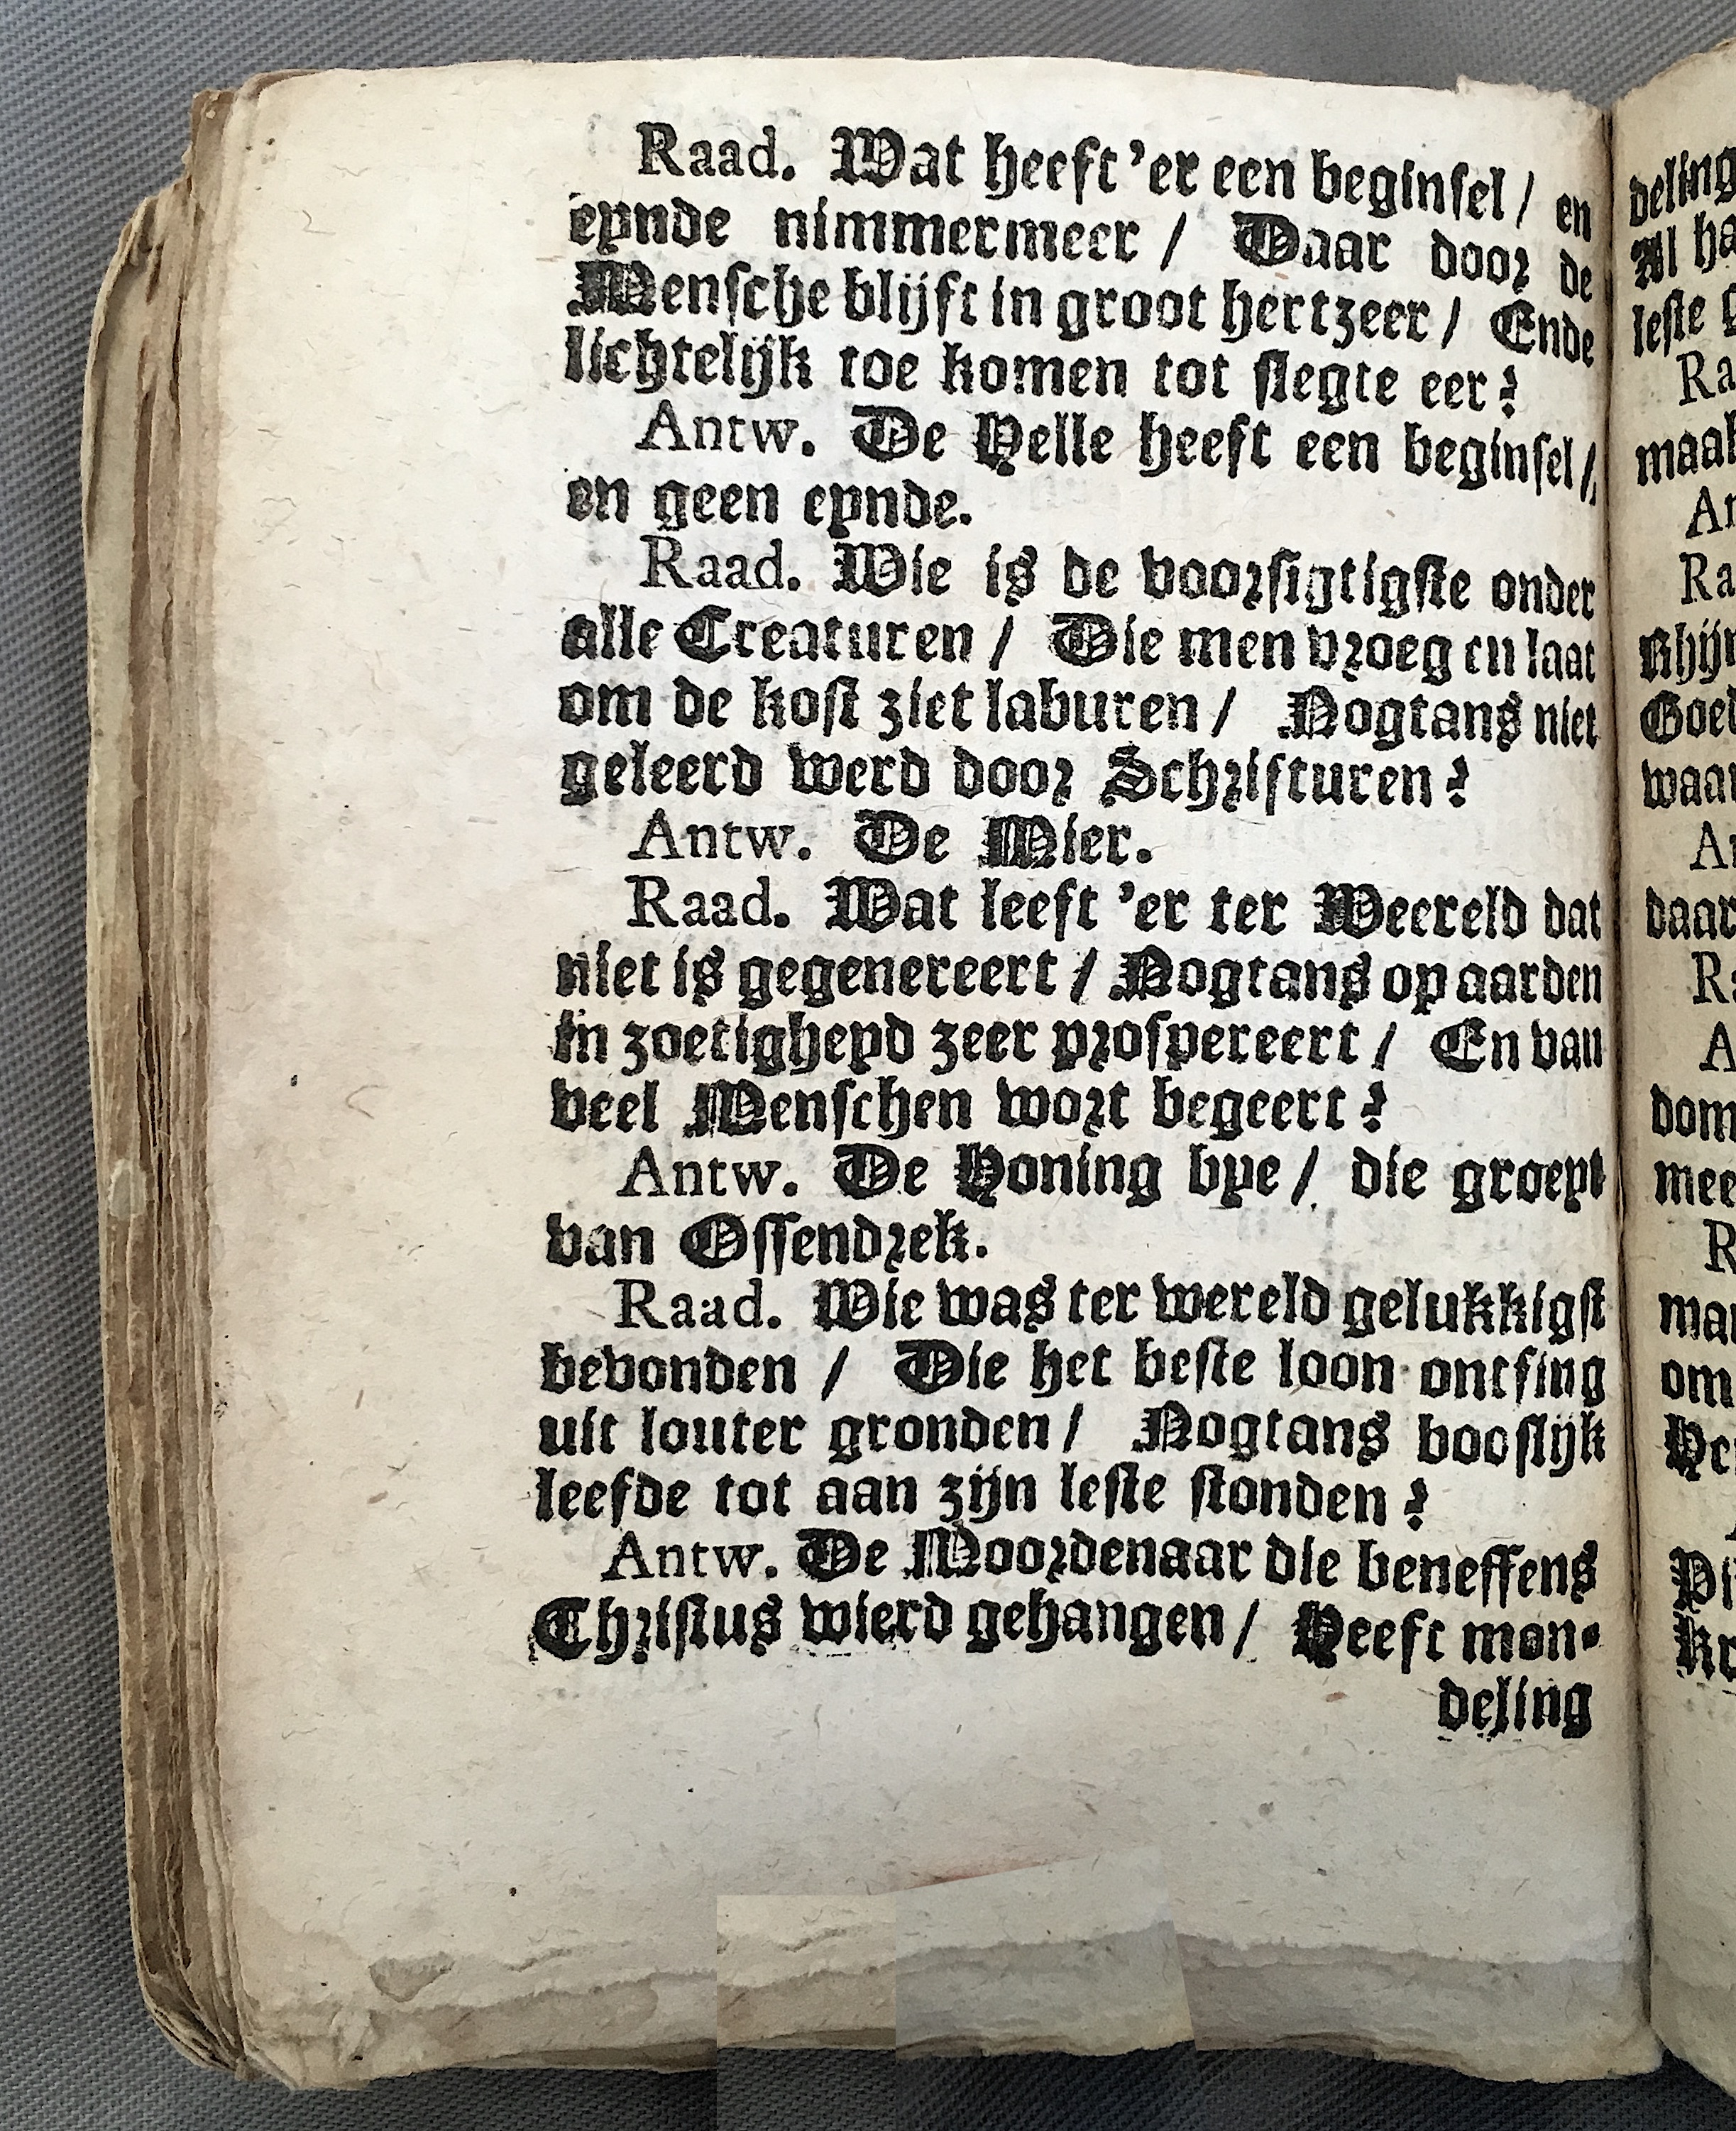 Raad. Wat heeft 'er een beginsel / en
eynde nimmermeer / Daar door de
Mensche blijft in groot hertzeer / Ende
lichtelijk toe komen tot slegte eer?
Antw. De Helle heeft een beginsel /
en geen eynde.
Raad. Wie is de voorsigtigste onder
alle Creaturen / Die men vroeg en laat
om de kost ziet laburen / Nogtans niet
geleerd werd door Schrifturen?
Antw. De Mier.
Raad. Wat leeft 'er ter Weereld dat
niet is gegenereert / Nogtans op aarden
in zoetigheyd zeer prospereert / En van
veel Menschen wort begeert?
Antw. De Honing bye / die groeyt
van Ossendrek.
Raad. Wie was ter wereld gelukkigst
bevonden / Die het beste loon ontfing
uit louter gronden / Nogtans booslijk
leefde tot aan zijn leste stonden?
Antw. De Moordenaar die beneffens
Christus wierd gehangen / Heeft mon-
deling
deling
Al ha
leste g
Ra
maak
An
Ra
Goed
waar
An
daar
R
A
dom
mee
R
man
om